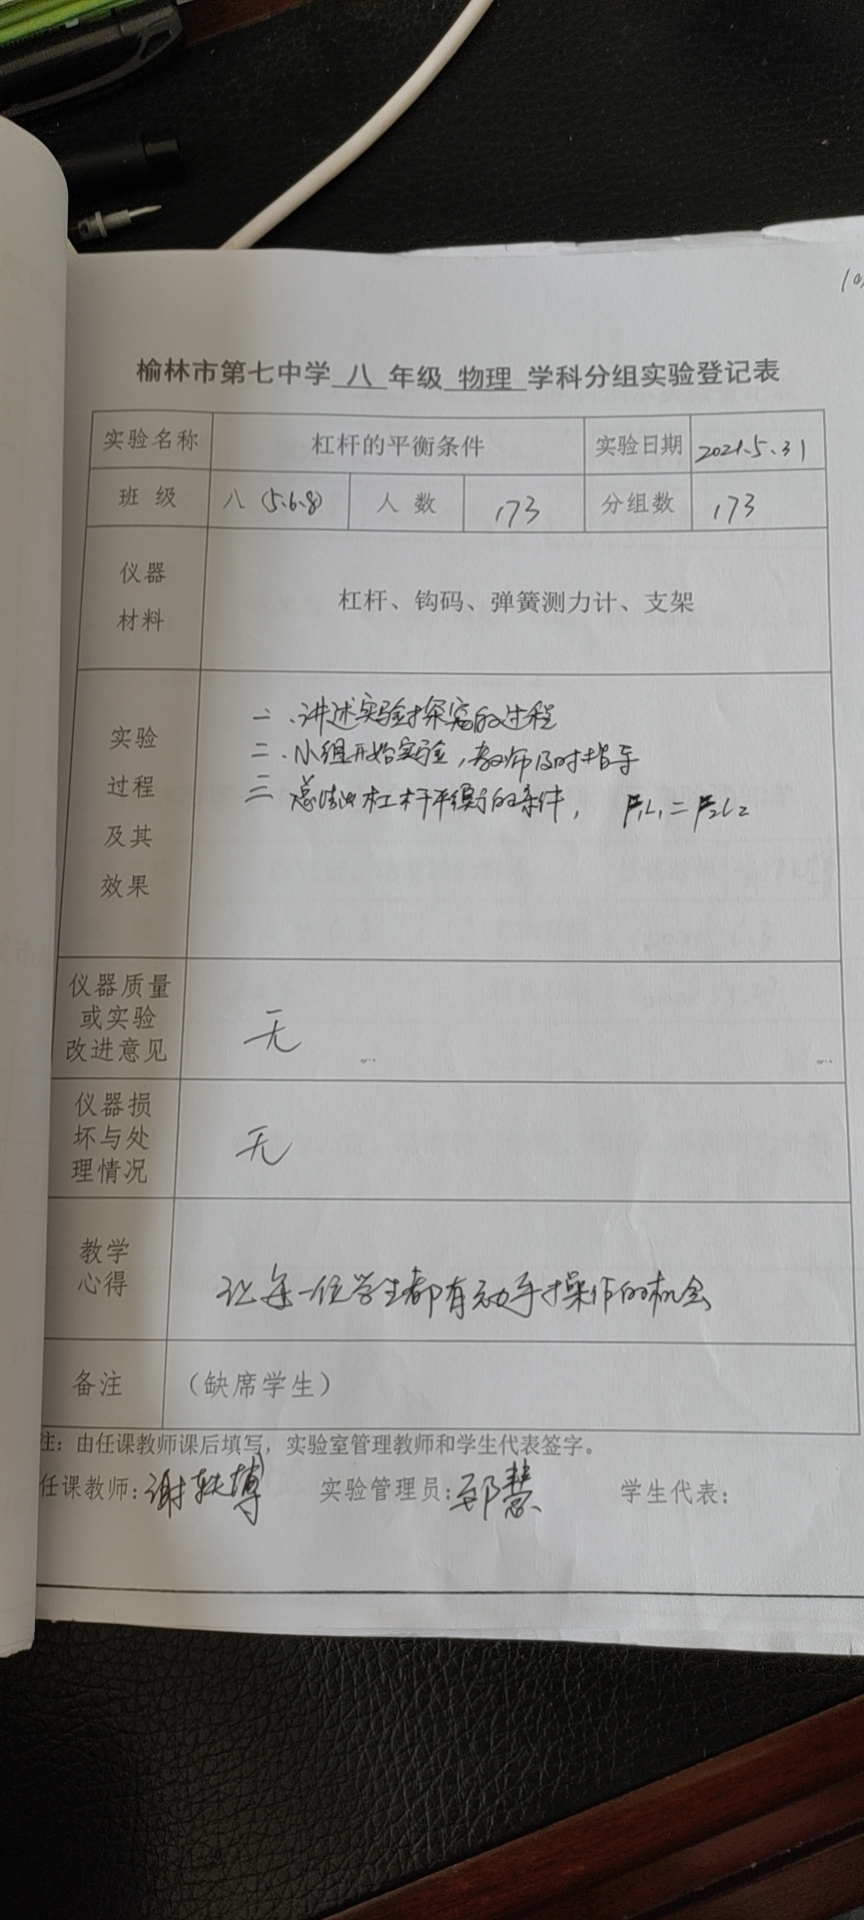 榆林市第七中学 八 年级 物理 学科分组实验登记表
实验名称 杠杆的平衡条件 实验日期 2021.5.31
班 级 八(5.6.8) 人 数 173 分组数 173
仪器
材料
杠杆、钩码、弹簧测力计、支架
实验
过程
及其
效果
一、讲述实验探究的过程
二、小组开始实验,教师及时指导
三 总结出杠杆平衡的条件, F1L1=F2L2
仪器质量
或实验
改进意见
无
仪器损
坏与处
理情况
无
教学
心得
让每一位学生都有动手操作的机会
备注 (缺席学生)
注:由任课教师课后填写,实验室管理教师和学生代表签字。
任课教师:谢轶博 实验管理员:郅慧 学生代表: